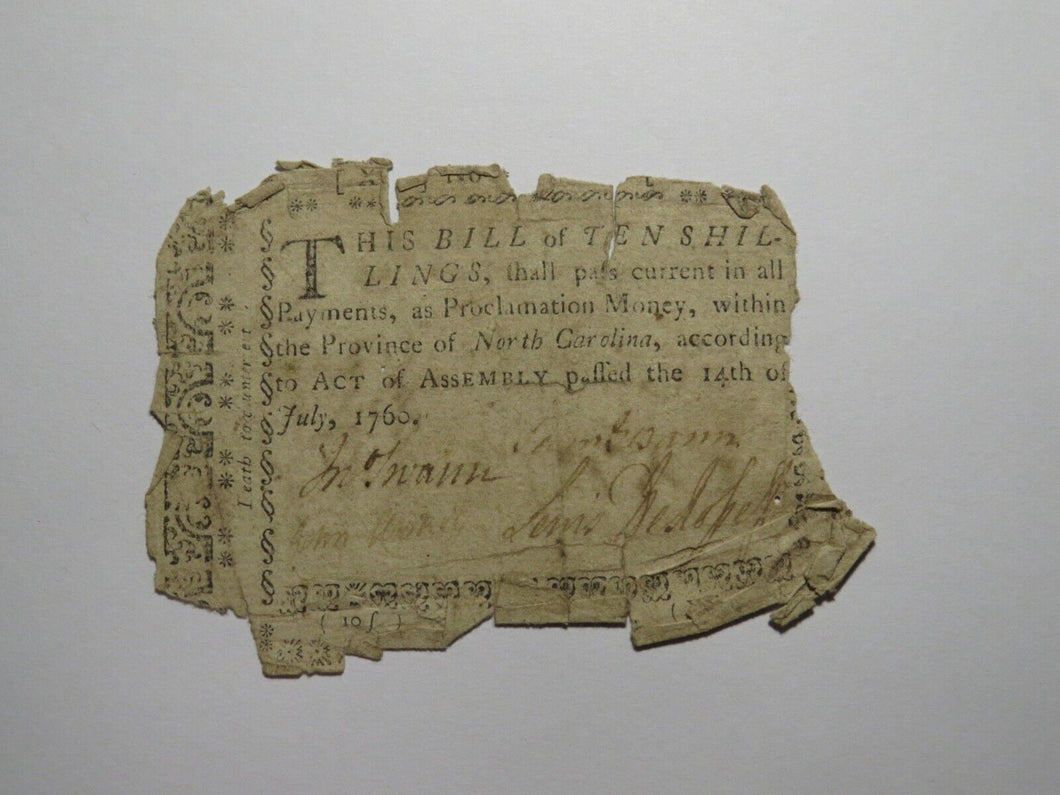 THIS BILL of TEN SHIL-
LINGS, shall pass current in all
Payments, as Proclamation Money, within
the Province of North Carolina, according
to ACT of ASSEMBLY passed the 14th of
July, 1760.
Jno Swann
Lewis DeRosset
( 10ſ )
Death to Counterfeit